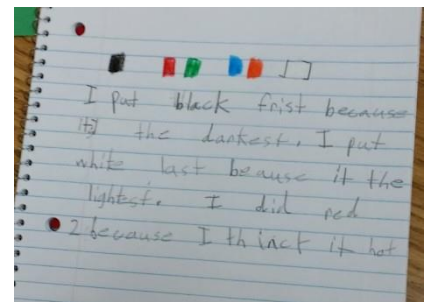 I put black frist because
its the darkest. I put
white last beause it the
lightest. I did red
2 because I thinct it hot